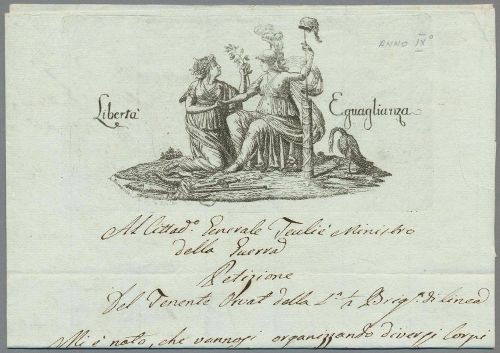 ANNO IXº
Libertà Eguaglianza
Al Cittadº Generale Teulié Ministro
della Guerra
Petizione
Del Tenente della Lª ½ Brigª di linea
Mi è noto, che vannosi organizzando diversi Corpi